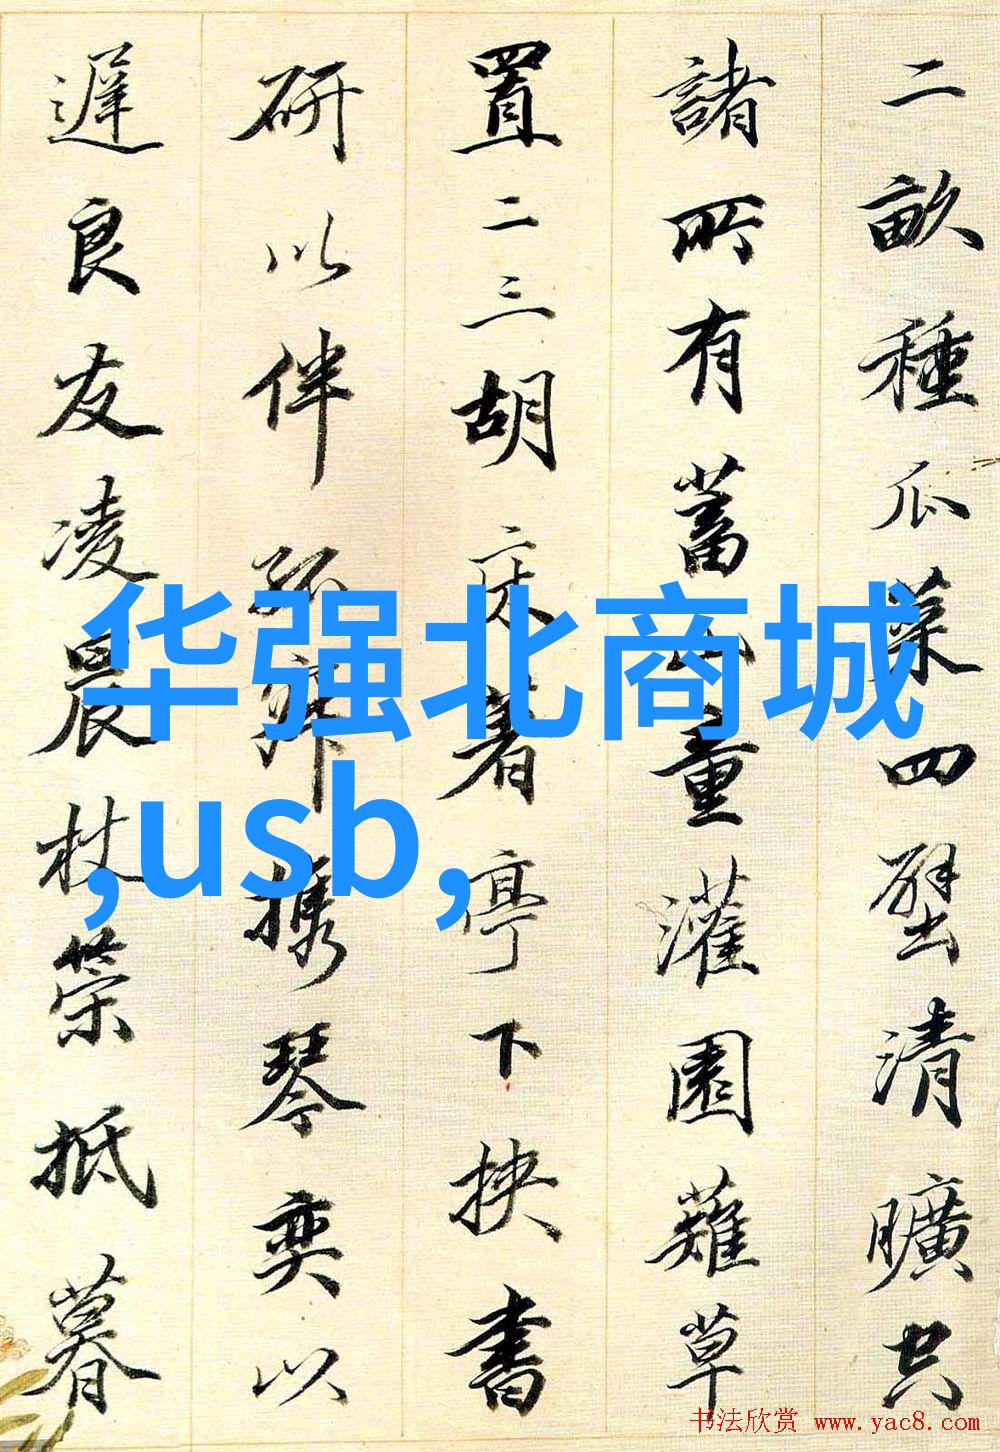 二畝種瓜菜四壁清曠共
諸所有蓄山童灌園薙草
置二三胡床著亭下挾書
研以伴孤寂携琴奕以
遲良友凌晨杖策抵暮
华强北商城
,usb,
书法欣赏 www.yac8.com